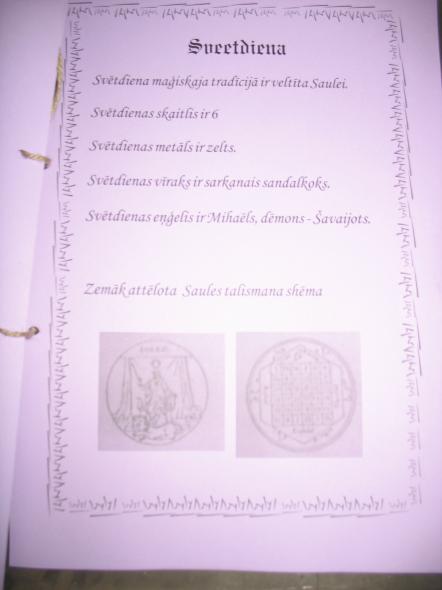 Sveetdiena
Svētdiena maģiskaja tradīcijā ir veltīta Saulei.
Svētdienas skaitlis ir 6
Svētdienas metāls ir zelts.
Svētdienas vīraks ir sarkanais sandalkoks.
Svētdienas eņģelis ir Mihaēls, dēmons - Šavaijots.
Zemāk attēlota Saules talismana shēma